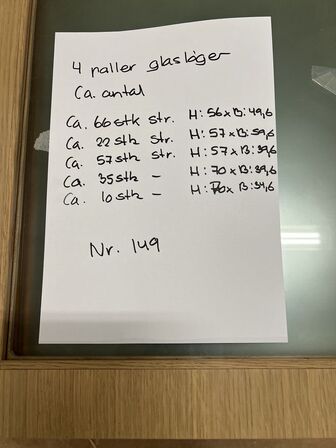 4 paller glaslåger
Ca. antal
Ca. 66 stk str. H: 56 x B: 49,6
Ca. 22 stk str. H: 57 x B: 59,6
Ca. 57 stk str. H: 57 x B: 39,6
Ca. 35 stk – H: 70 x B: 39,6
Ca. 10 stk – H: 70 x B: 34,6
Nr. 149